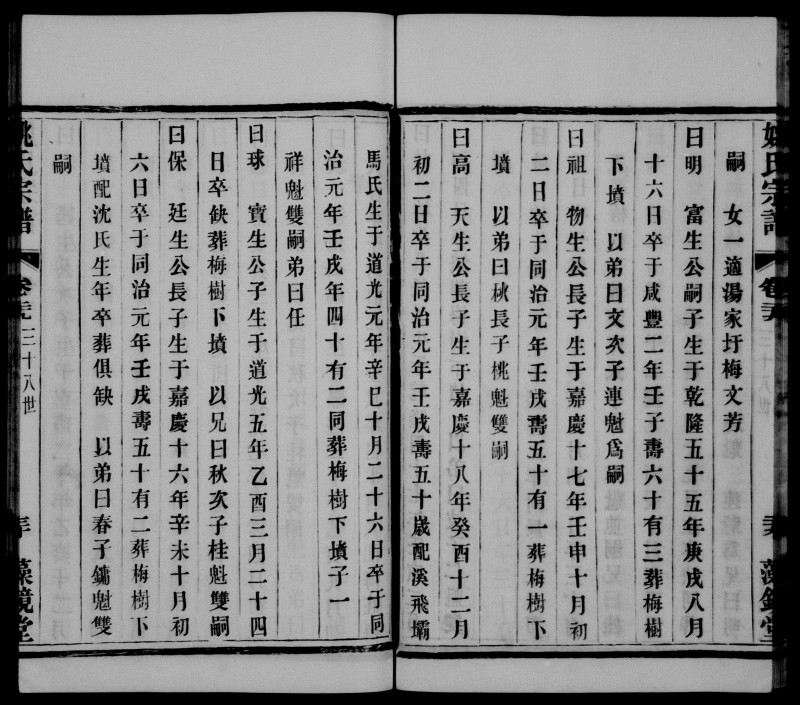 嗣　女一適湯家圩梅文芳
曰明　富生公嗣子生于乾隆五十五年庚戌八月
十六日卒于咸豐二年壬子壽六十有三葬梅樹
下墳　以弟曰文次子連魁爲嗣
曰祖　物生公長子生于嘉慶十七年壬申十月初
二日卒于同治元年壬戌壽五十有一葬梅樹下
墳　以弟曰秋長子桃魁雙嗣
曰高　天生公長子生于嘉慶十八年癸酉十二月
初二日卒于同治元年壬戌壽五十歲配溪飛壩
馬氏生于道光元年辛巳十月二十六日卒于同
治元年壬戌年四十有二同葬梅樹下墳子一
祥魁雙嗣弟曰任
曰球　寶生公子生于道光五年乙酉三月二十四
日卒缺葬梅樹下墳　以兄曰秋次子桂魁雙嗣
曰保　廷生公長子生于嘉慶十六年辛未十月初
六日卒于同治元年壬戌壽五十有二葬梅樹下
墳配沈氏生年卒葬俱缺　以弟曰春子鏞魁雙
嗣
姚氏宗譜　三十八世　藻鏡堂